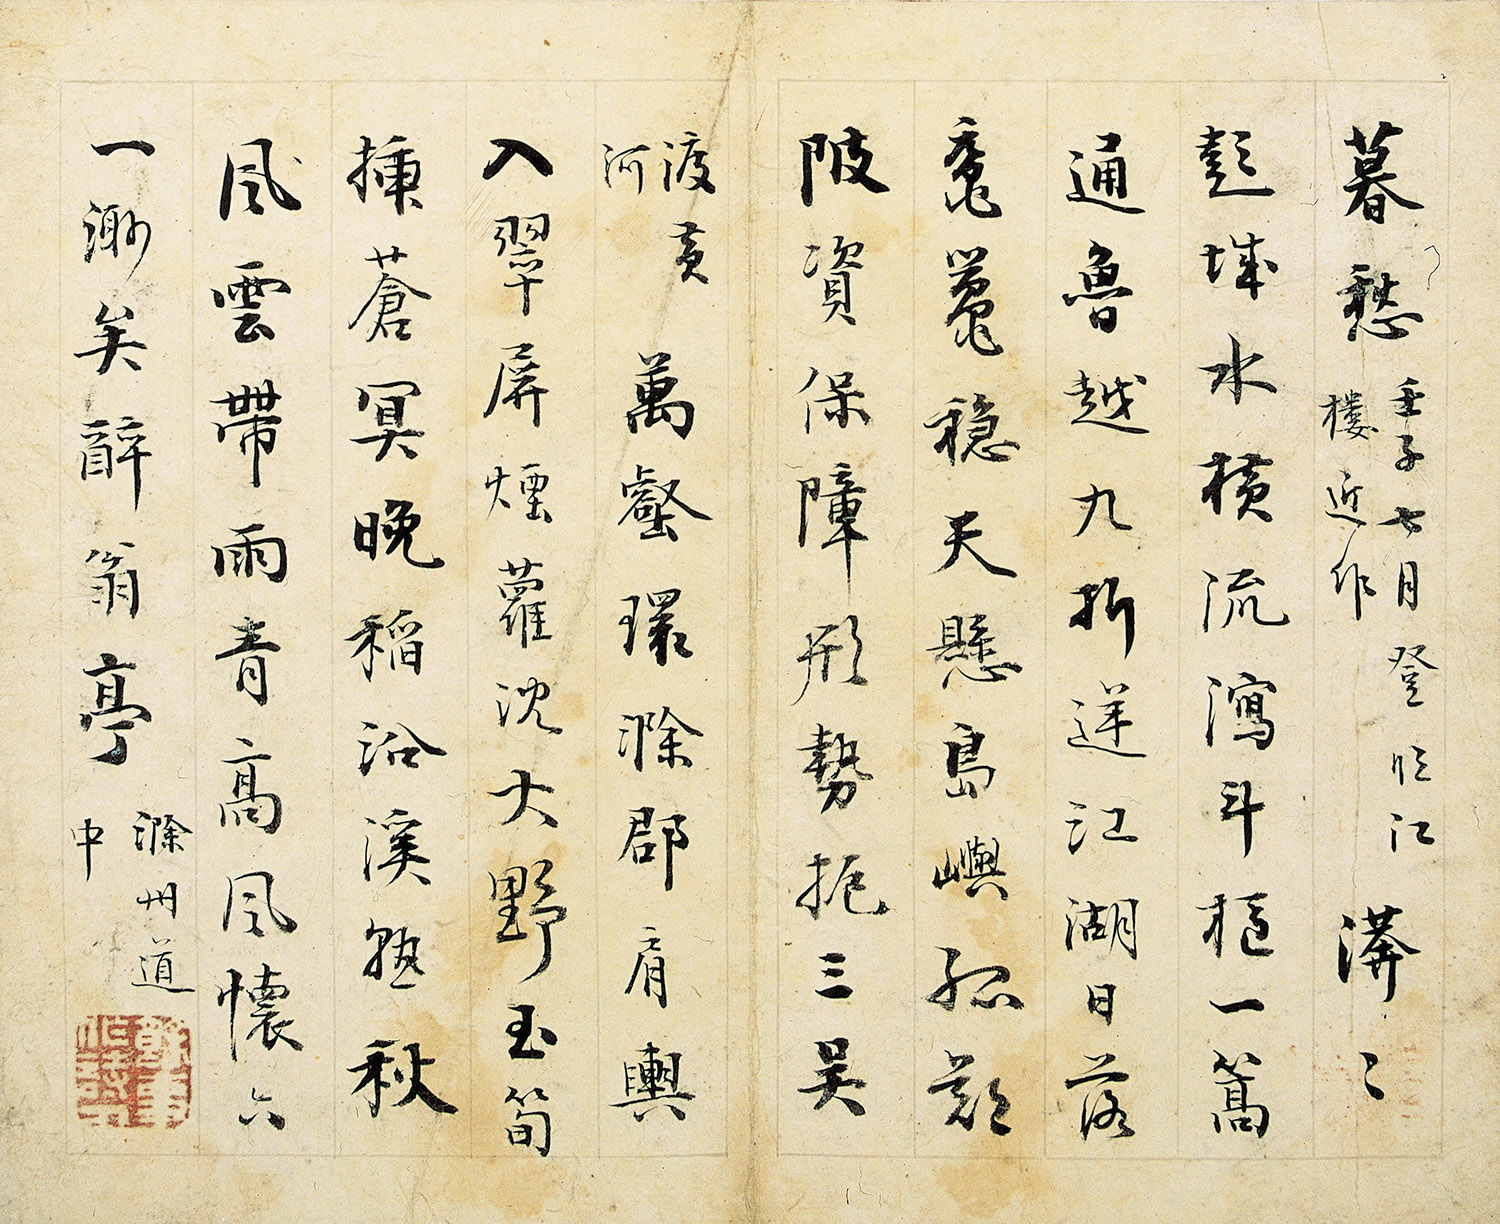 暮愁 壬子七月登臨江樓近作 漭〻
彭城水橫流瀉斗樞一篙
通魯越九折逆江湖日落
黿鼉穩天懸島嶼孤
陂資保障形勢扼三吳
渡黃河 萬壑環滁郡肩輿
入翠屏煙蘿沈大野玉筍
插蒼冥晚稻沿溪熟秋
風雲帶雨青高風懷六
一渺矣醉翁亭 滁州道中